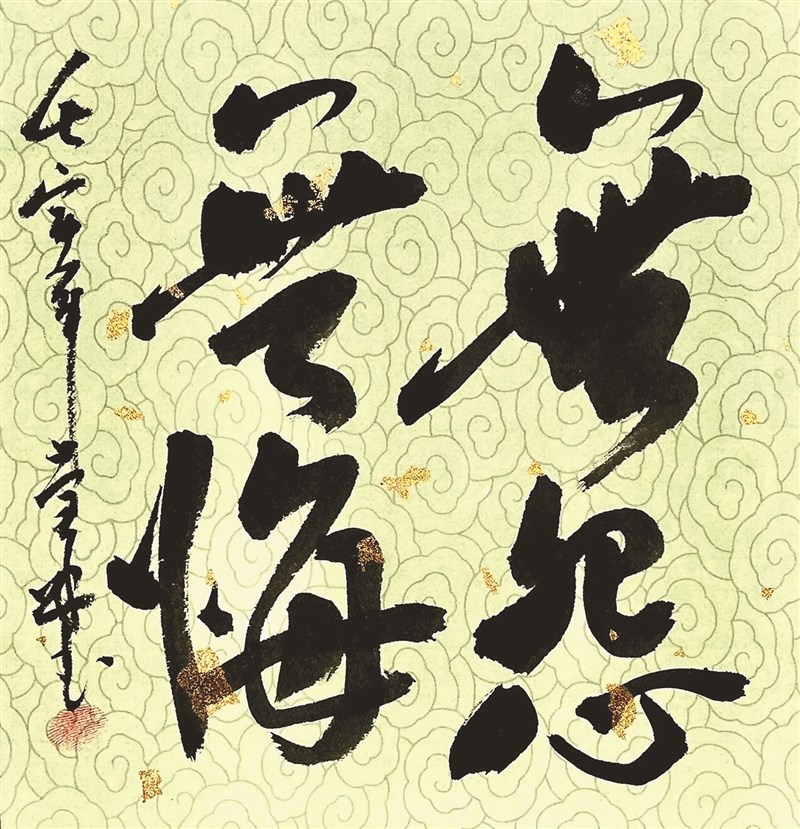 無怨
無悔
壬寅年